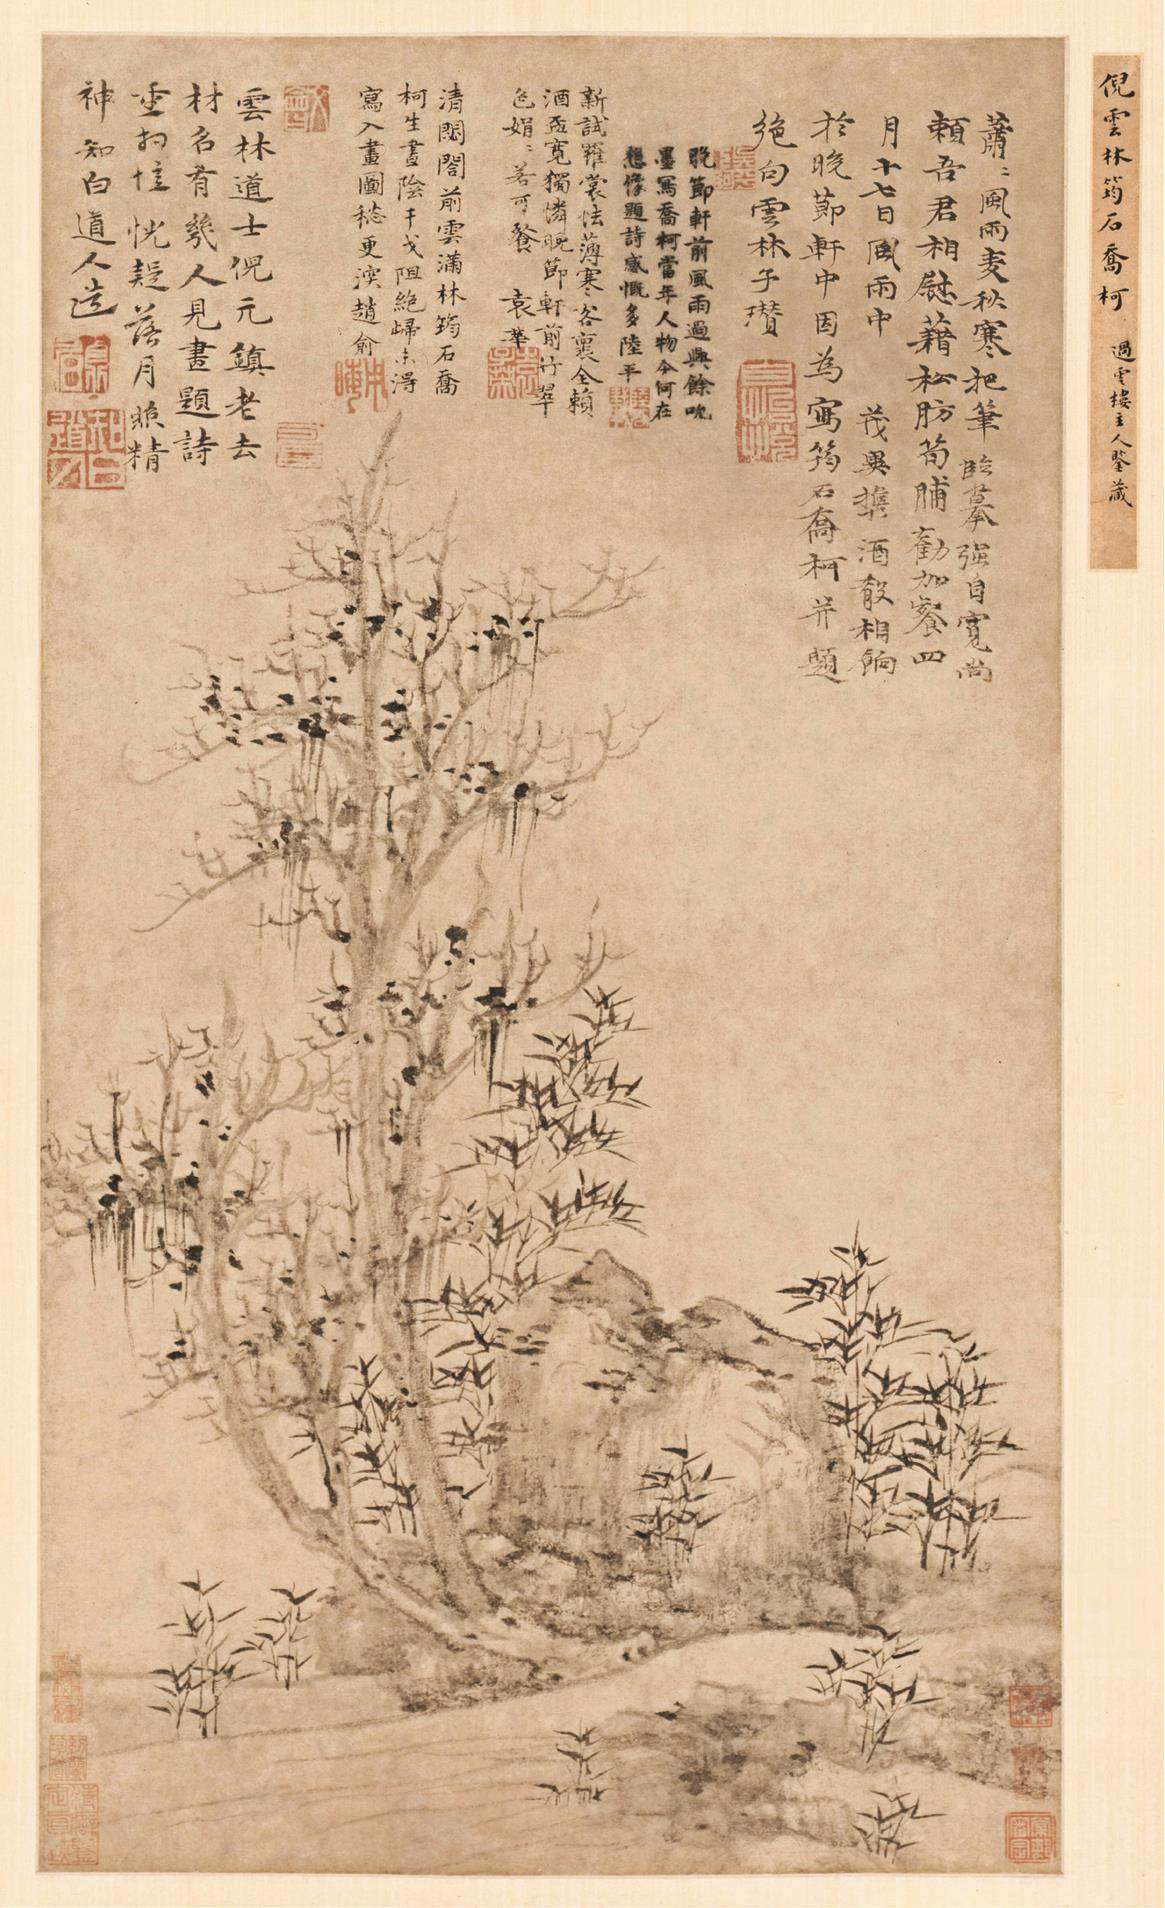 倪雲林筠石喬柯
過雲樓主人鑒藏
蕭〻風雨麦秋寒把筆臨摹强自寬尚
賴吾君相慰藉松肪笋脯勸加餐四
月十七日風雨中 茂異携酒殽相餉
於晚節軒中因為寫筠石喬柯并題
絶句雲林子瓚
晚節軒前風雨過興餘吮
墨寫喬柯當年人物今何在
想像題詩感慨多陸平
新試羅裳怯薄寒客裏全賴
酒盃寬獨憐晚節軒前竹翠
色娟〻若可餐 袁華
清閟閣前雲滿林筠石喬
柯生晝陰干戈阻絶歸未得
寫入畫圖愁更深趙俞
雲林道士倪元鎮老去
材名有幾人見畫題詩
重初恍疑落月照精
神 知白道人